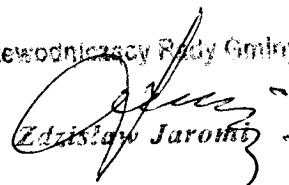 ewodniczący Rady Gminy
Zdzisław Jaromi